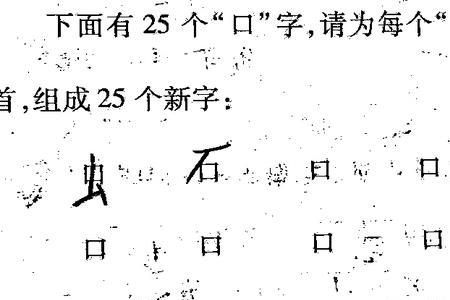 下面有 25 个“口”字,请为每个“
首,组成 25 个新字:
虫 石 口 口
口 口 口 口